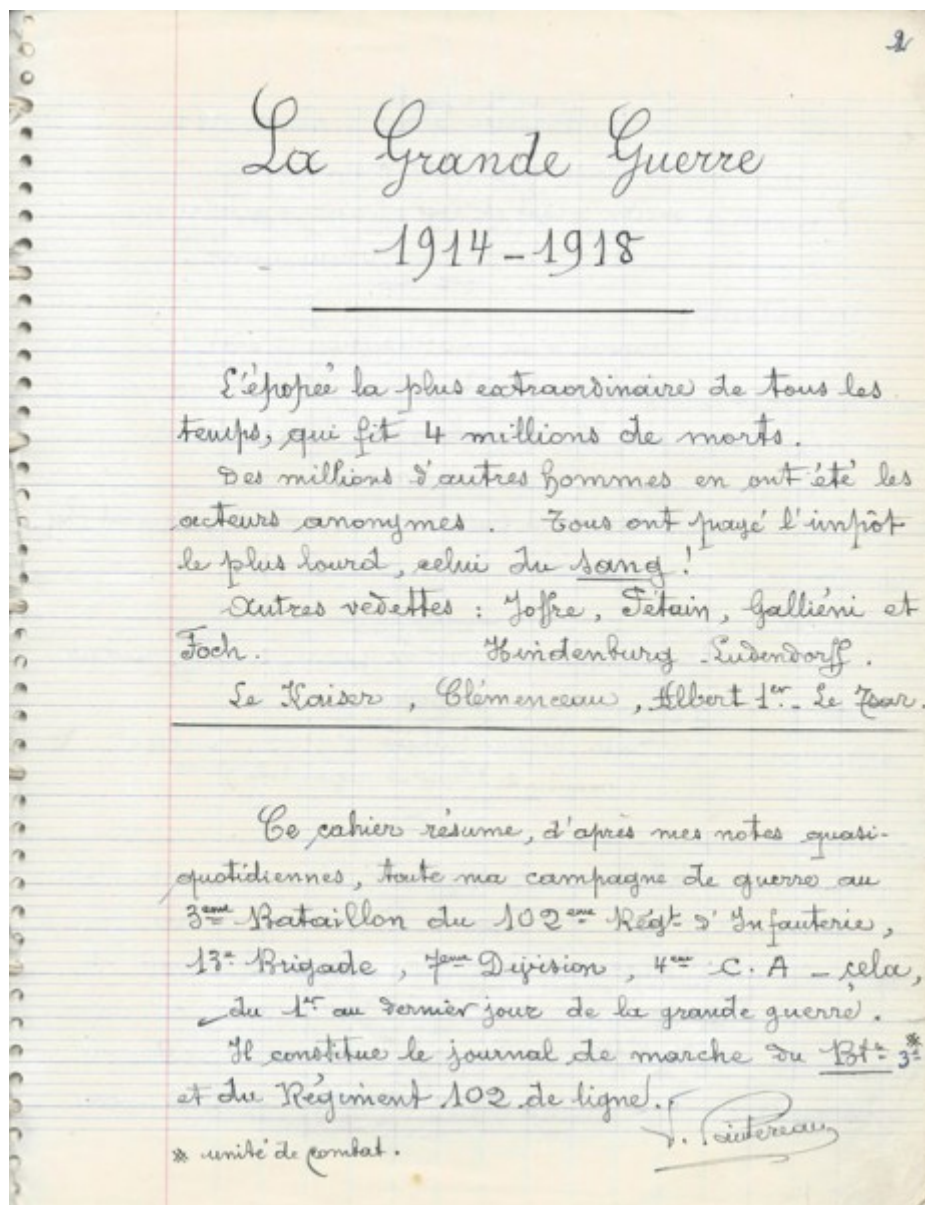 2
La Grande Guerre
1914-1918
L'épopée la plus extraordinaire de tous les
temps, qui fit 4 millions de morts.
Des millions d'autres hommes en ont été les
acteurs anonymes. Tous ont payé l'impôt
le plus lourd, celui du sang!
Autres vedettes : Joffre, Pétain, Galliéni et
Foch. Hindenburg - Ludendorff.
Le Kaiser, Clémenceau, Albert 1er - Le Tsar.
Ce cahier résume, d'après mes notes quasi-
quotidiennes, toute ma campagne de guerre au
3eme Bataillon du 102eme Régt d'Infanterie,
13e Brigade, 7eme Division, 4eme C.A - cela,
du 1er au dernier jour de la grande guerre.
Il constitue le journal de marche du Bton 3e*
et du Régiment 102 de ligne.
* unité de combat.